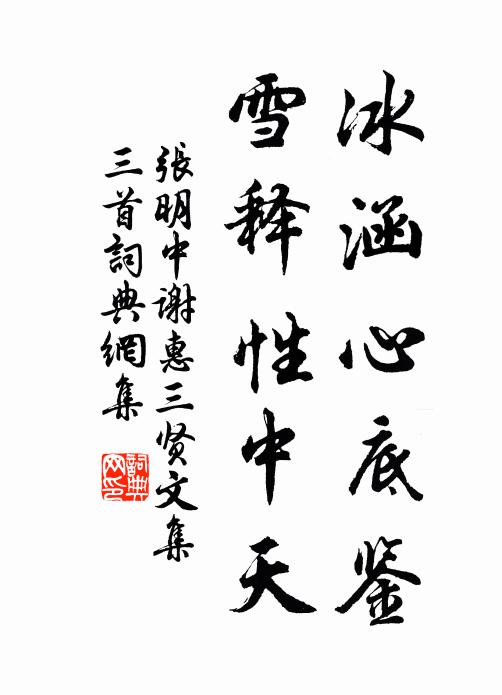 冰涵心底鉴
雪释性中天
張明中谢惠三贤文集
三首詞典網集
詞典网印